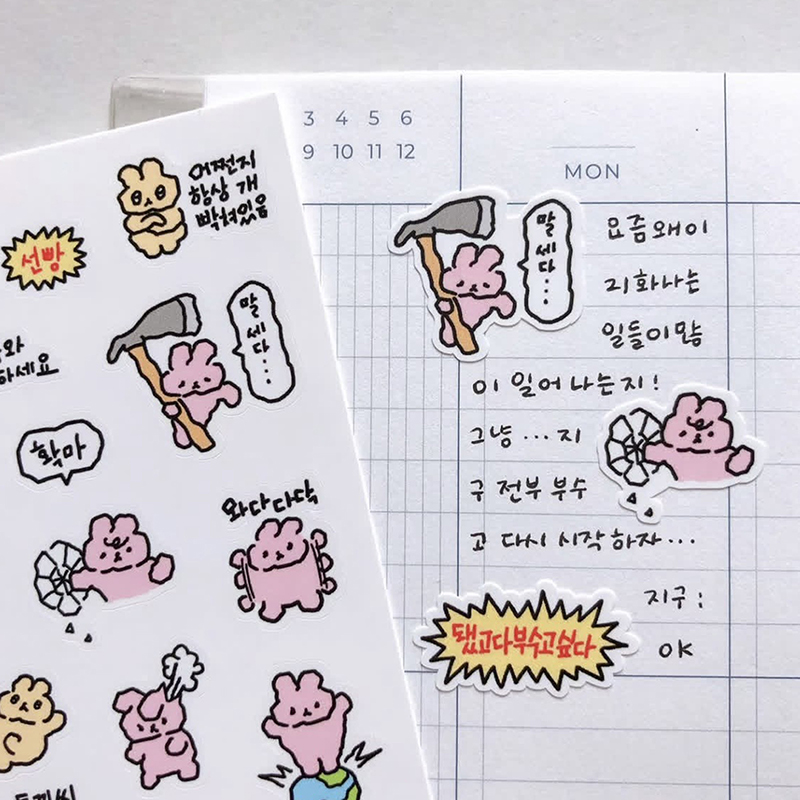 3 4 5 6
9 10 11 12
MON
어쩐지
항상 개
빡쳐있음
선빵
말
세
다
...
확마
와다다닥
말
세
다
...
요즘 왜이
리 화나는
일들이 많
이 일어나는지!
그냥 ... 지
구 전부 부수
고 다시 시작하자...
지구 :
OK
됐고다부수고싶다